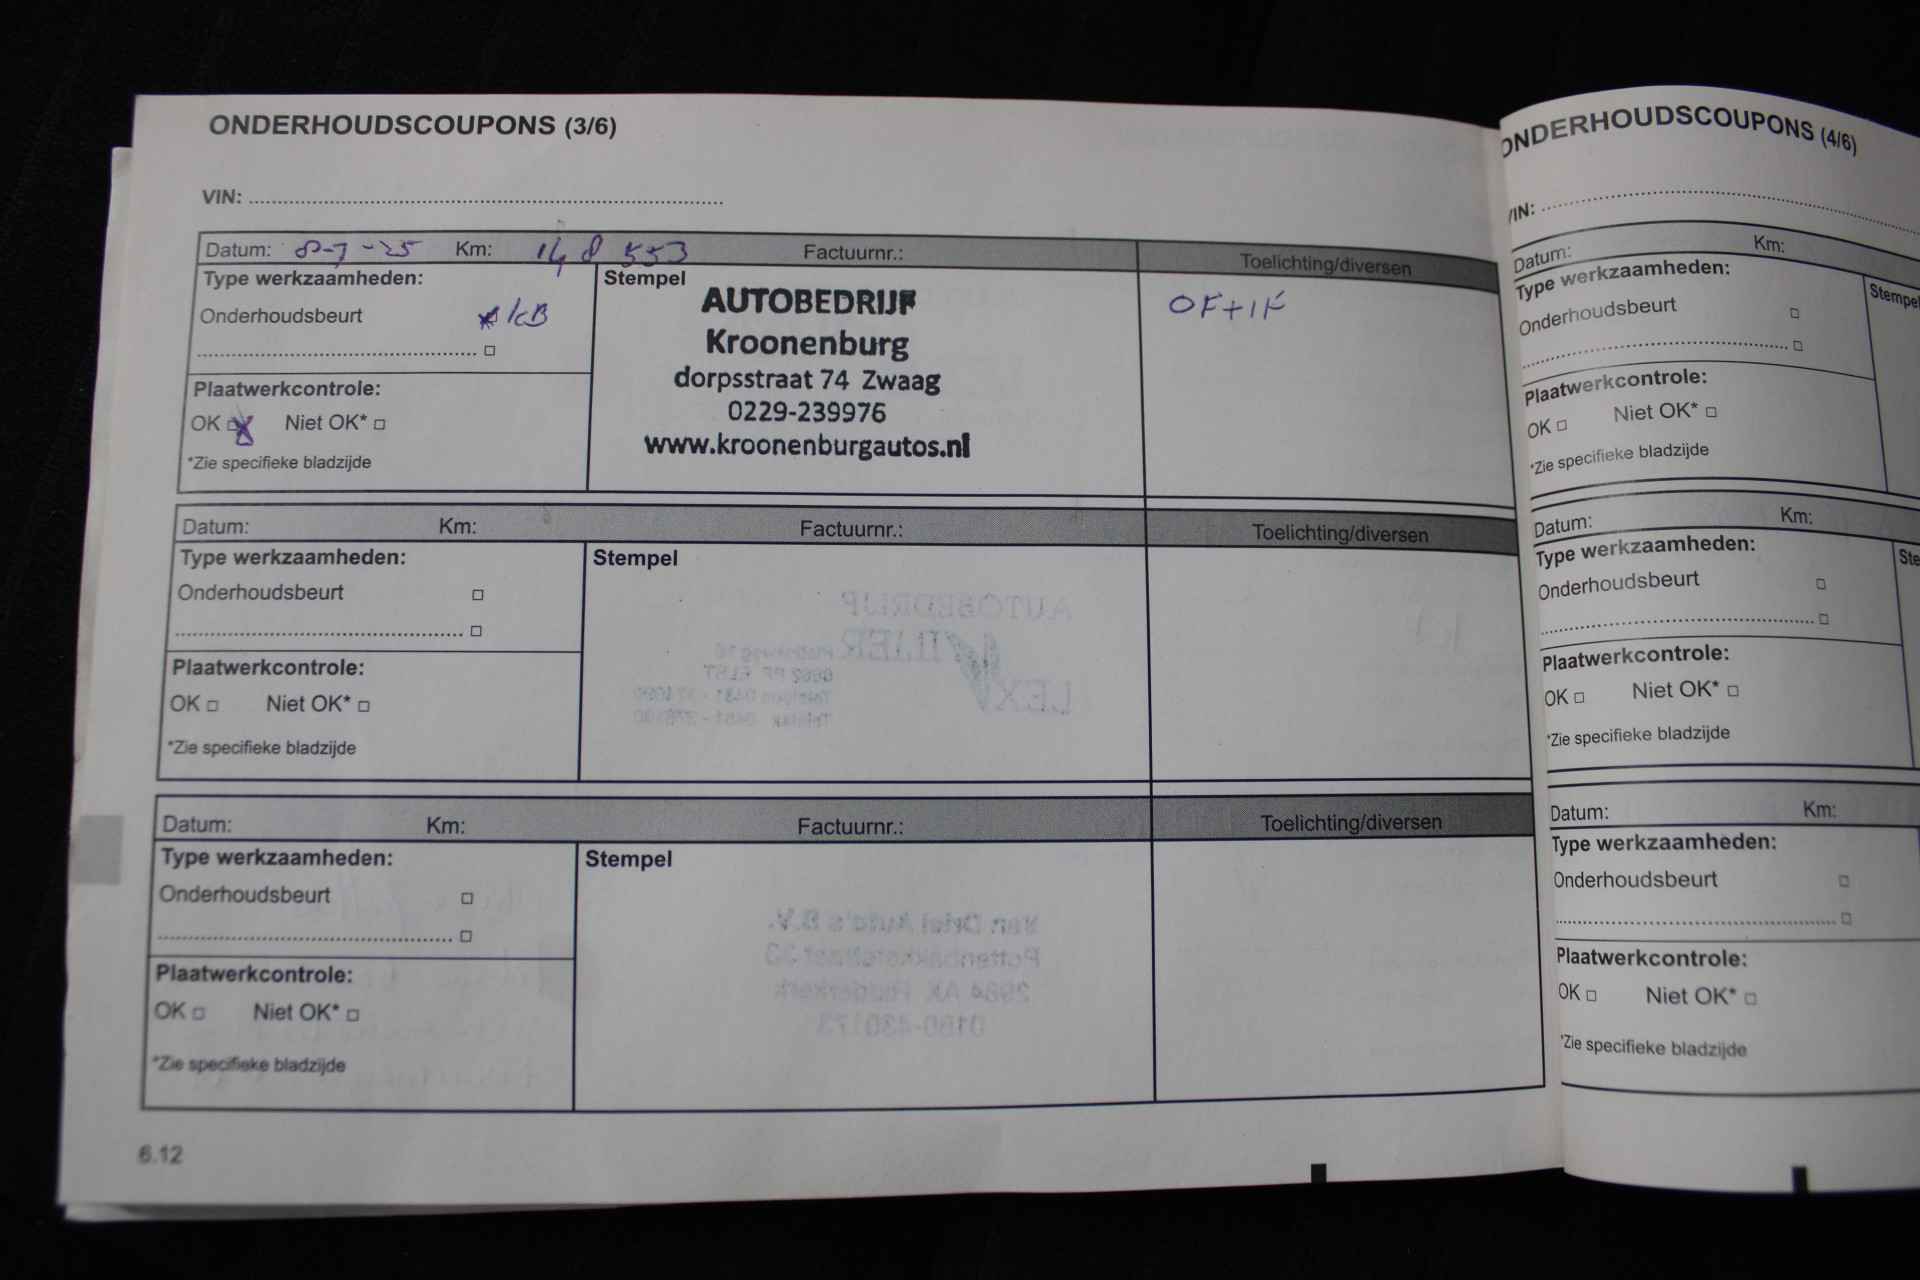 ONDERHOUDSCOUPONS (3/6)
VIN:
Datum: 8-7-25 Km: 148 553 Factuurnr.: Toelichting/diversen
Type werkzaamheden:
Stempel
Onderhoudsbeurt KB
Plaatwerkcontrole:
OK Niet OK*
*Zie specifieke bladzijde
AUTOBEDRIJF
Kroonenburg
dorpsstraat 74 Zwaag
0229-239976
www.kroonenburgautos.nl
OF+IF
Datum: Km: Factuurnr.: Toelichting/diversen
Type werkzaamheden:
Stempel
Onderhoudsbeurt
Plaatwerkcontrole:
OK Niet OK*
*Zie specifieke bladzijde
AUTOBEDRIJF
LEX WILLER
Datum: Km: Factuurnr.: Toelichting/diversen
Type werkzaamheden:
Stempel
Onderhoudsbeurt
Plaatwerkcontrole:
OK Niet OK*
*Zie specifieke bladzijde
Van Driel Auto's B.V.
6.12
ONDERHOUDSCOUPONS (4/6)
VIN:
Datum: Km:
Type werkzaamheden:
Stempel
Onderhoudsbeurt
Plaatwerkcontrole:
OK Niet OK*
*Zie specifieke bladzijde
Datum: Km:
Type werkzaamheden:
Ste
Onderhoudsbeurt
Plaatwerkcontrole:
OK Niet OK*
*Zie specifieke bladzijde
Datum: Km:
Type werkzaamheden:
Onderhoudsbeurt
Plaatwerkcontrole:
OK Niet OK*
*Zie specifieke bladzijde